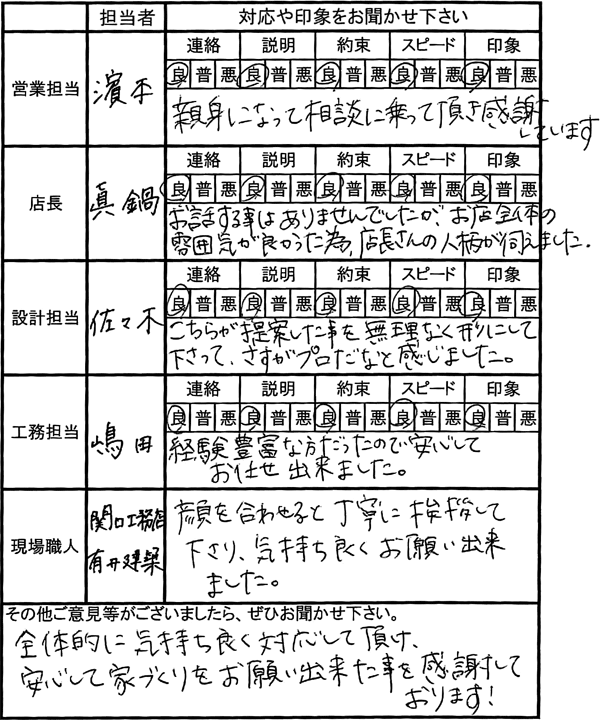 担当者 対応や印象をお聞かせ下さい
営業担当 濱本 連絡 説明 約束 スピード 印象
良 普 悪 良 普 悪 良 普 悪 良 普 悪 良 普 悪
親身になって相談に乗って頂き感謝
しています
店長 真鍋 連絡 説明 約束 スピード 印象
良 普 悪 良 普 悪 良 普 悪 良 普 悪 良 普 悪
お話する事はありませんでしたが、お店全体の
雰囲気が良かった為、店長さんの人柄が伺えました.
設計担当 佐々木 連絡 説明 約束 スピード 印象
良 普 悪 良 普 悪 良 普 悪 良 普 悪 良 普 悪
こちらが提案した事を無理なく形にして
下さって、さすがプロだなと感じました。
工務担当 嶋田 連絡 説明 約束 スピード 印象
良 普 悪 良 普 悪 良 普 悪 良 普 悪 良 普 悪
経験豊富な方だったので安心して
お任せ出来ました。
現場職人 関口工務店
有井建築
顔を合わせると丁寧に挨拶して
下さり、気持ち良くお願い出来
ました。
その他ご意見等がございましたら、ぜひお聞かせ下さい。
全体的に気持ち良く対応して頂け、
安心して家づくりをお願い出来た事を感謝して
おります!